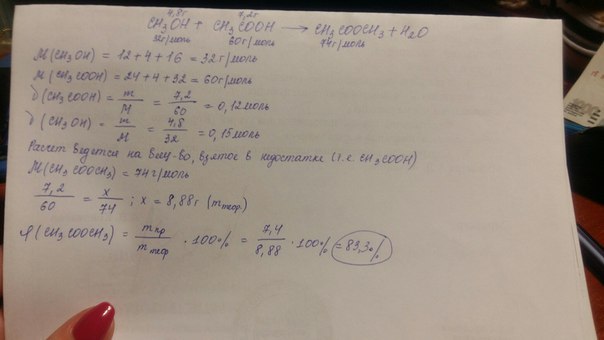 4,8г 7,2г
CH₃OH + CH₃COOH → CH₃COOCH₃ + H₂O
32г/моль 60г/моль 74г/моль
M(CH₃OH) = 12 + 4 + 16 = 32г/моль
M(CH₃COOH) = 24 + 4 + 32 = 60г/моль
ν(CH₃COOH) = m/M = 7,2/60 = 0,12моль
ν(CH₃OH) = m/M = 4,8/32 = 0,15моль
Расчет ведется на вещ-во, взятое в недостатке (т.е. CH₃COOH)
M(CH₃COOCH₃) = 74г/моль
7,2/60 = x/74 ; x = 8,88г (mтеор.)
φ(CH₃COOCH₃) = mпр/mтеор · 100% = 7,4/8,88 · 100% = 83,3%